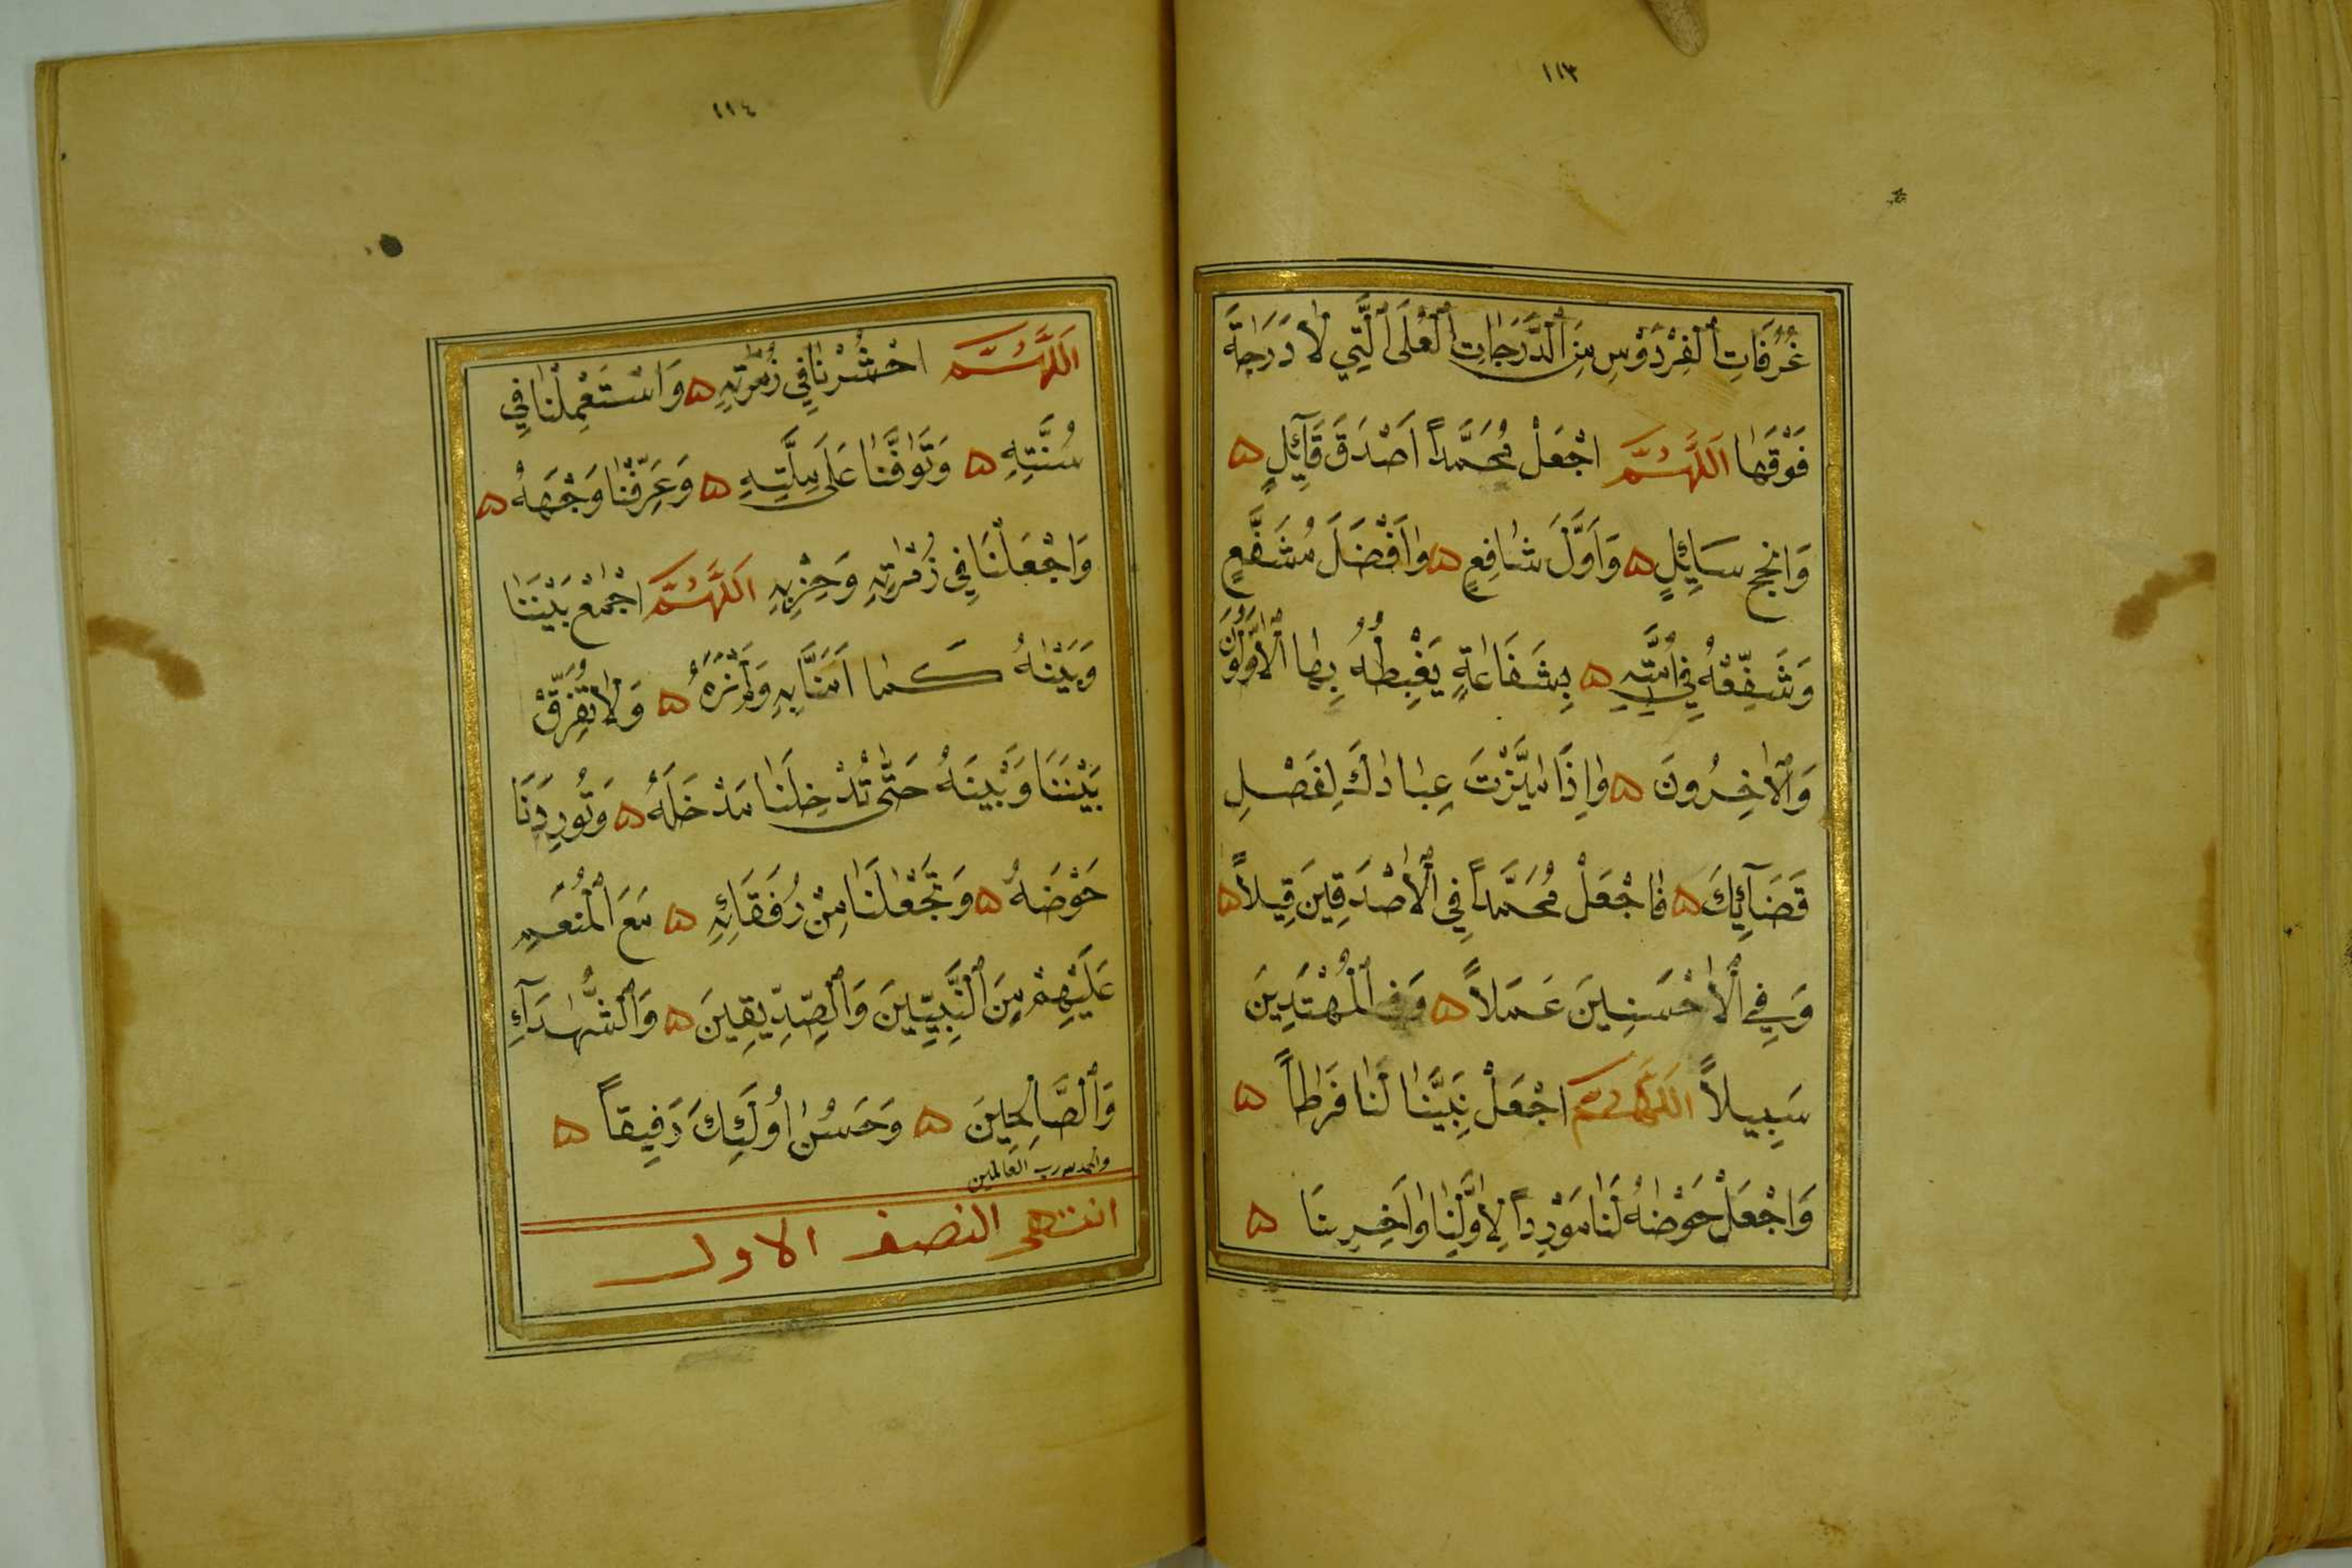 ١١٣
غُرُفَاتِ ٱلْفِرْدَوْسِ مِنَ ٱلدَّرَجَاتِ ٱلْعُلَى ٱلَّتِي لَا دَرَجَةَ
فَوْقَهَا اَللّٰهُمَّ اجْعَلْ مُحَمَّداً اَصْدَقَ قَآئِلٍ ۵
وَانجحَ سَايِٕلٍ ۵ وَاَوَّلَ شَافِعٍ ۵ وَاَفْضَلَ مُشَفَّعٍ
وَشَفِّعْهُ فِي اُمَّتِهِ ۵ بِشَفَاعَةٍ يَغْبِطُهُ بِهَا ٱلْاَوَّلُونَ
وَٱلْاٰخِرُونَ ۵ وَاِذَا مَيَّزْتَ عِبَادَكَ لِفَصْلِ
قَضَآئِكَ ۵ فَاجْعَلْ مُحَمَّداً فِي ٱلْاَصْدَقِينَ قِيلاً ۵
وَفِي ٱلْاَحْسَنِينَ عَمَلاً ۵ وَفِي ٱلْمُهْتَدِينَ
سَبِيلاً اَللّٰهُمَّ اجْعَلْ نَبِيَّنَا لَنَا فَرَطاً ۵
وَاجْعَلْ حَوْضَهُ لَنَا مَوْرِداً لِاَوَّلِنَا وَاٰخِرِنَا ۵
١١٤
اَللّٰهُمَّ احْشُرْنَا فِي زُمْرَتِهِ ۵ وَاسْتَعْمِلْنَا فِي
سُنَّتِهِ ۵ وَتَوَفَّنَا عَلَى مِلَّتِهِ ۵ وَعَرِّفْنَا وَجْهَهُ ۵
وَاجْعَلْنَا فِي زُمْرَتِهِ وَحِزْبِهِ اَللّٰهُمَّ اجْمَعْ بَيْنَنَا
وَبَيْنَهُ كَمَا اٰمَنَّا بِهِ وَلَمْ نَرَهُ ۵ وَلَا تُفَرِّقْ
بَيْنَنَا وَبَيْنَهُ حَتَّى تُدْخِلَنَا مَدْخَلَهُ ۵ وَتُورِدَنَا
حَوْضَهُ ۵ وَتَجْعَلَنَا مِنْ رُفَقَائِهِ ۵ مَعَ الْمُنْعَمِ
عَلَيْهِمْ مِنَ ٱلنَّبِيِّينَ وَٱلصِّدِّيقِينَ ۵ وَٱلشُّهَدَآءِ
وَٱلصَّالِحِينَ ۵ وَحَسُنَ اُولَٓئِكَ رَفِيقاً ۵
والحمد لله رب العالمين
انتهى النصف الاول